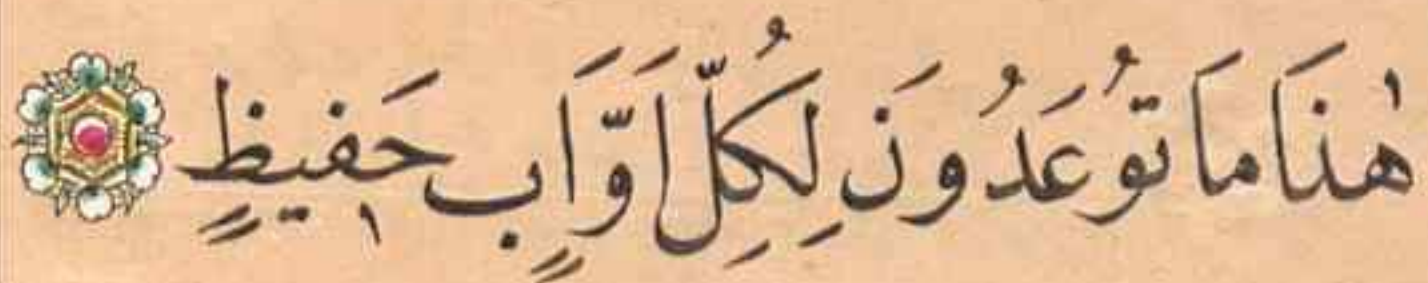 هٰذَا مَا تُوعَدُونَ لِكُلِّ اَوَّابٍ حَفٖيظٍ